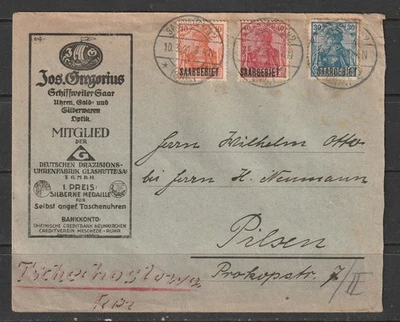 Jos. Gregorius
Schiffweiler-Saar
Uhren, Gold- und
Silberwaren
Optik.
MITGLIED
DER
DEUTSCHEN PRÄZISIONS-
UHRENFABRIK GLASHÜTTE i/SA
E.G.M.B.H.
1. PREIS
SILBERNE MEDAILLE
FÜR
Selbst angef. Taschenuhren
BANKKONTO:
RHEINISCHE CREDITBANK NEUNKIRCHEN
CREDITVEREIN MESCHEDE-RUHR
SAARGEBIET
SAARGEBIET
30 30
SAARGEBIET
Herrn Wilhelm Otto
bei Herrn H. Neumann
Pilsen
Prokopstr. 7/II
Tschechoslowa